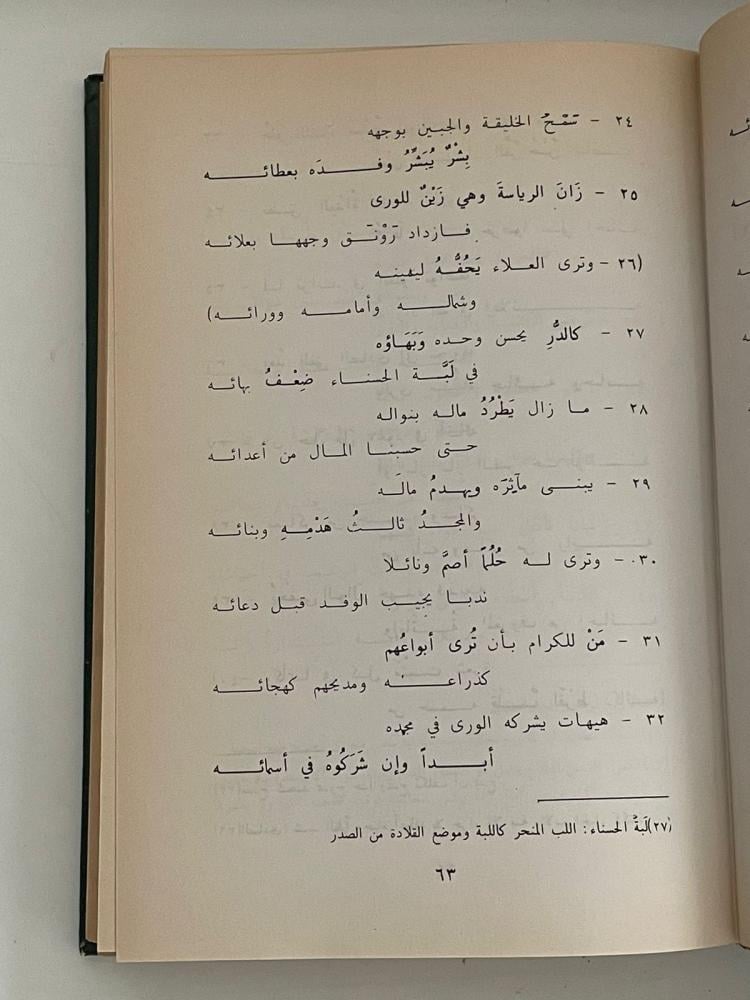 ٢٤ - سَمْحُ الخليقة والجبين بوجهه
بِشْرٌ يُبَشِّرُ وفـــــدَه بعطائـــــه
٢٥ - زَانَ الرياسةَ وهي زَيْنٌ للورى
فـازداد رَوْنَـق وجههـا بعلائـه
(٢٦ - وترى العـلاء يَحُفُّـهُ ليمينـه
وشمالـــه وأمامـــه وورائـــه)
٢٧ - كالدُّرِ يحسن وحـده وَبَهَـاؤه
في لَبَّـــة الحسنـــاء ضِعْـفُ بهائـــه
٢٨ - مـا زال يَطْرُدُ مالـه بنوالـه
حتـى حسبنـا المـال من أعدائـه
٢٩ - يبنـى مآثِرَه ويهـدمُ مالَـه
والمجـدُ ثالـثُ هَدْمِـهِ وبنائـه
٣٠ - وترى لـه حُلُماً أصمَّ ونائـلا
ندبـا يجيـب الوفـد قبـل دعائـه
٣١ - مَنْ للكرام بـأن تُرى أبواعُهم
كذراعـــه ومديحهم كهجائـــه
٣٢ - هيهات يشركه الورى في مجده
أبـــداً وإن شَرَكُوهُ في أسمائـــه
(٢٧) لَبةُ الحسناء: اللبب المنحر كاللبة وموضع القلادة من الصدر
٦٣